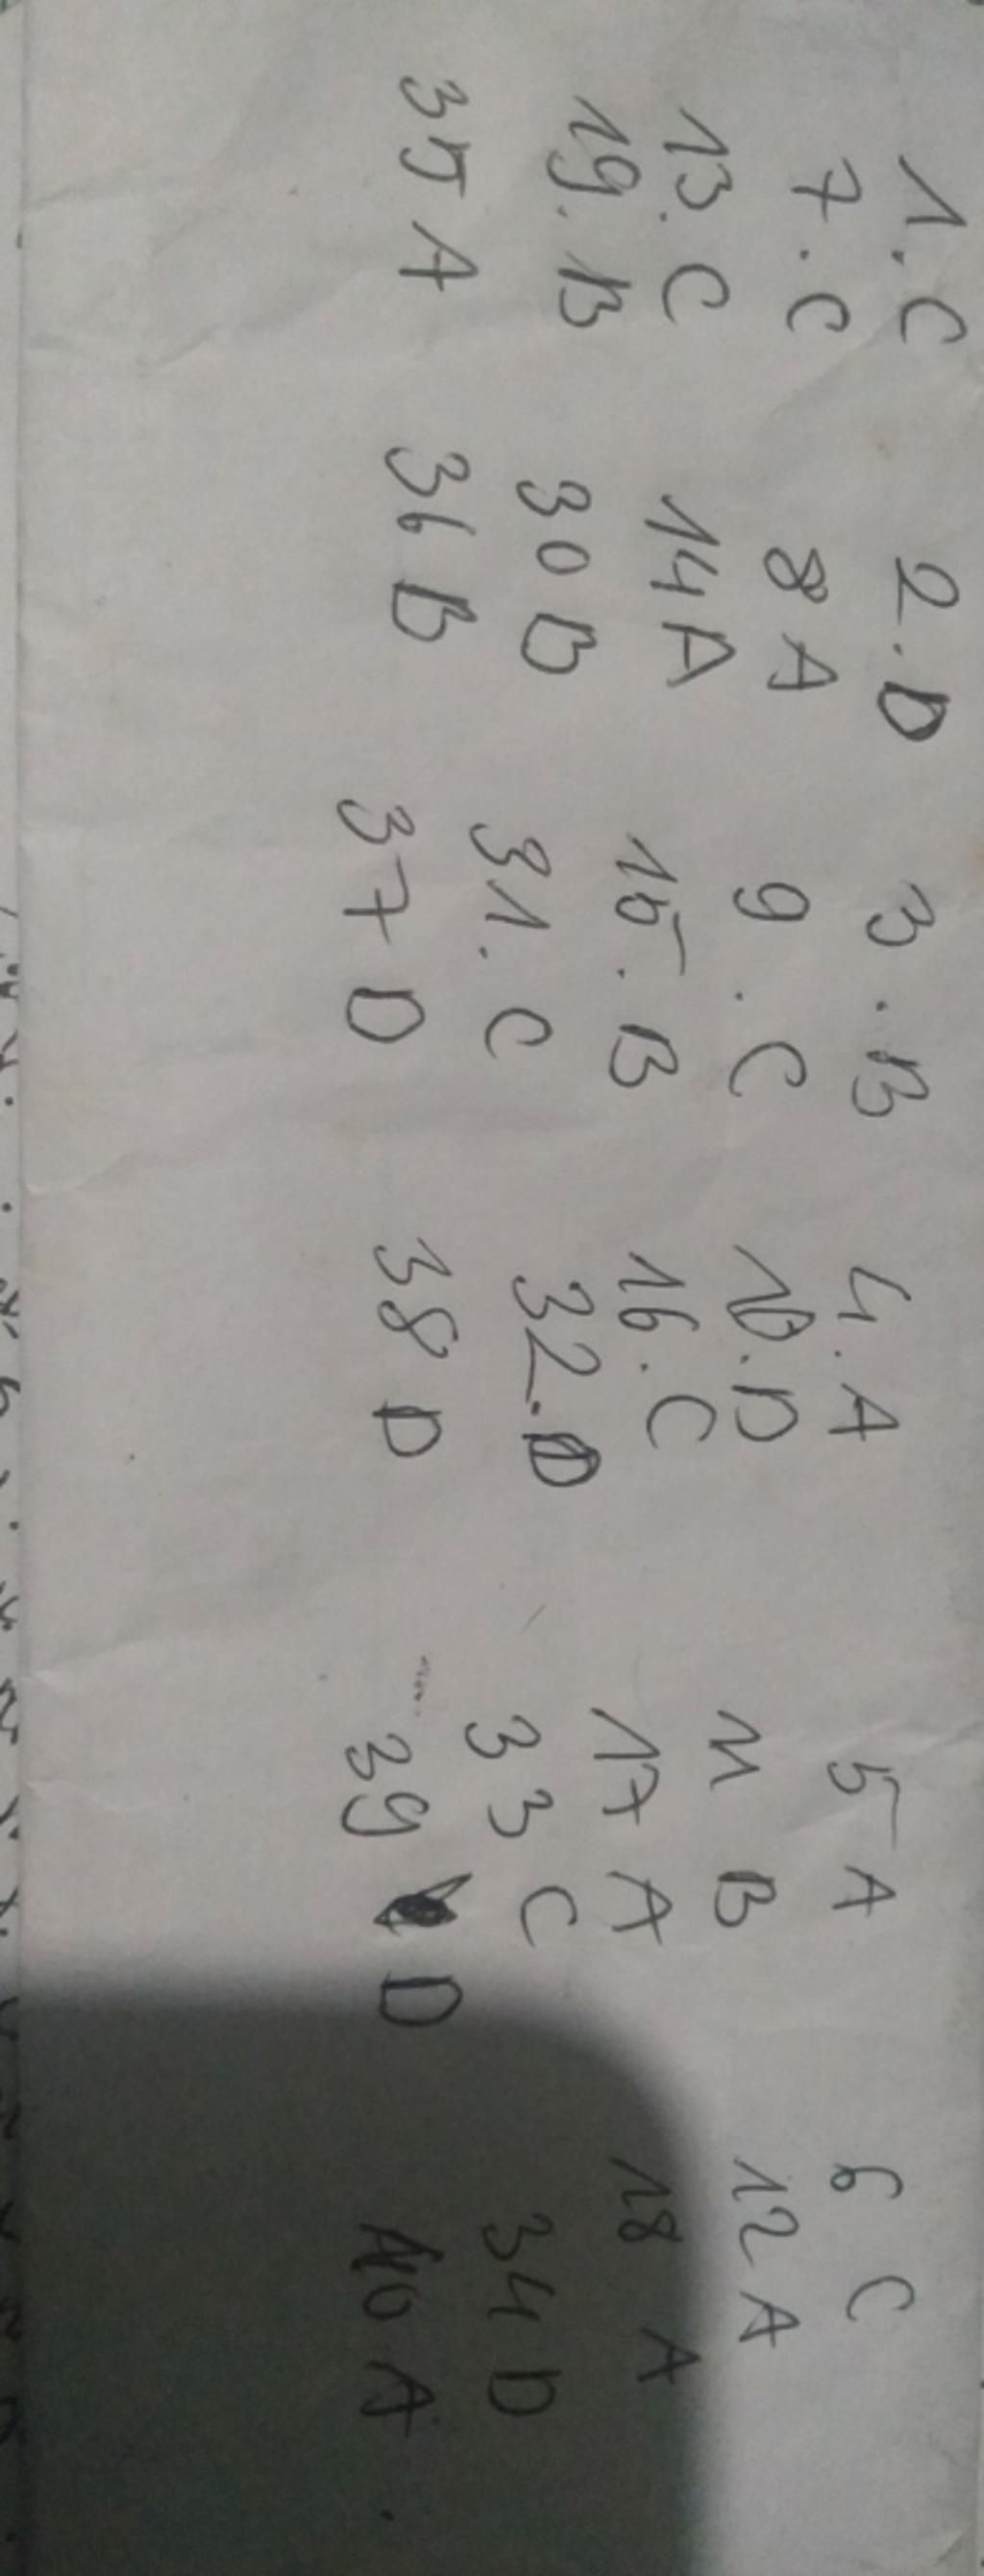 1. C 2. D 3. B 4. A 5 A 6 C
7. C 8 A 9. C 10. D 11 B 12 A
13. C 14 A 15. B 16. C 17 A 18 A
19. B 30 B 31. C 32. D 33 C 34 D
35 A 36 B 37 D 38 D 39 D 40 A.